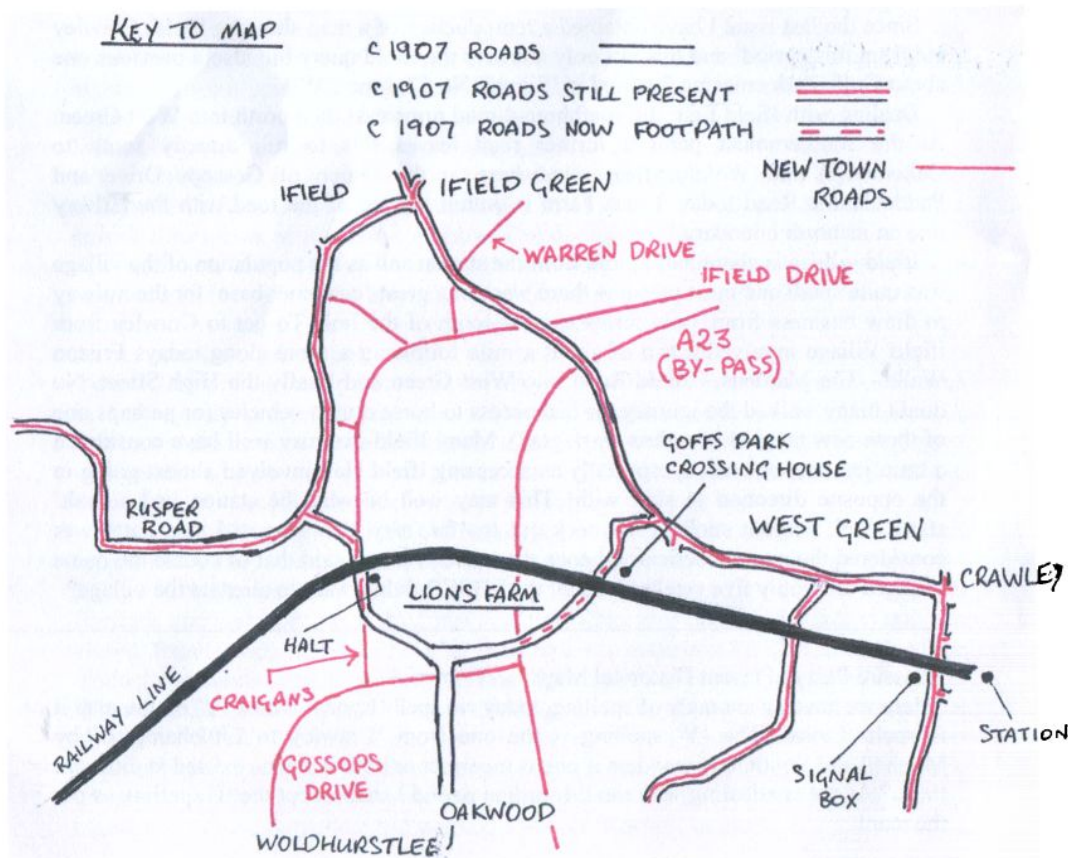 KEY TO MAP
C 1907 ROADS
C 1907 ROADS STILL PRESENT
C 1907 ROADS NOW FOOTPATH
NEW TOWN
ROADS
IFIELD
IFIELD GREEN
WARREN DRIVE
IFIELD DRIVE
A23
(BY-PASS)
GOFFS PARK
CROSSING HOUSE
RUSPER
ROAD
WEST GREEN
CRAWLEY
LIONS FARM
HALT
CRAIGANS
RAILWAY LINE
STATION
GOSSOPS
DRIVE
SIGNAL
BOX
OAKWOOD
WOLDHURSTLEE